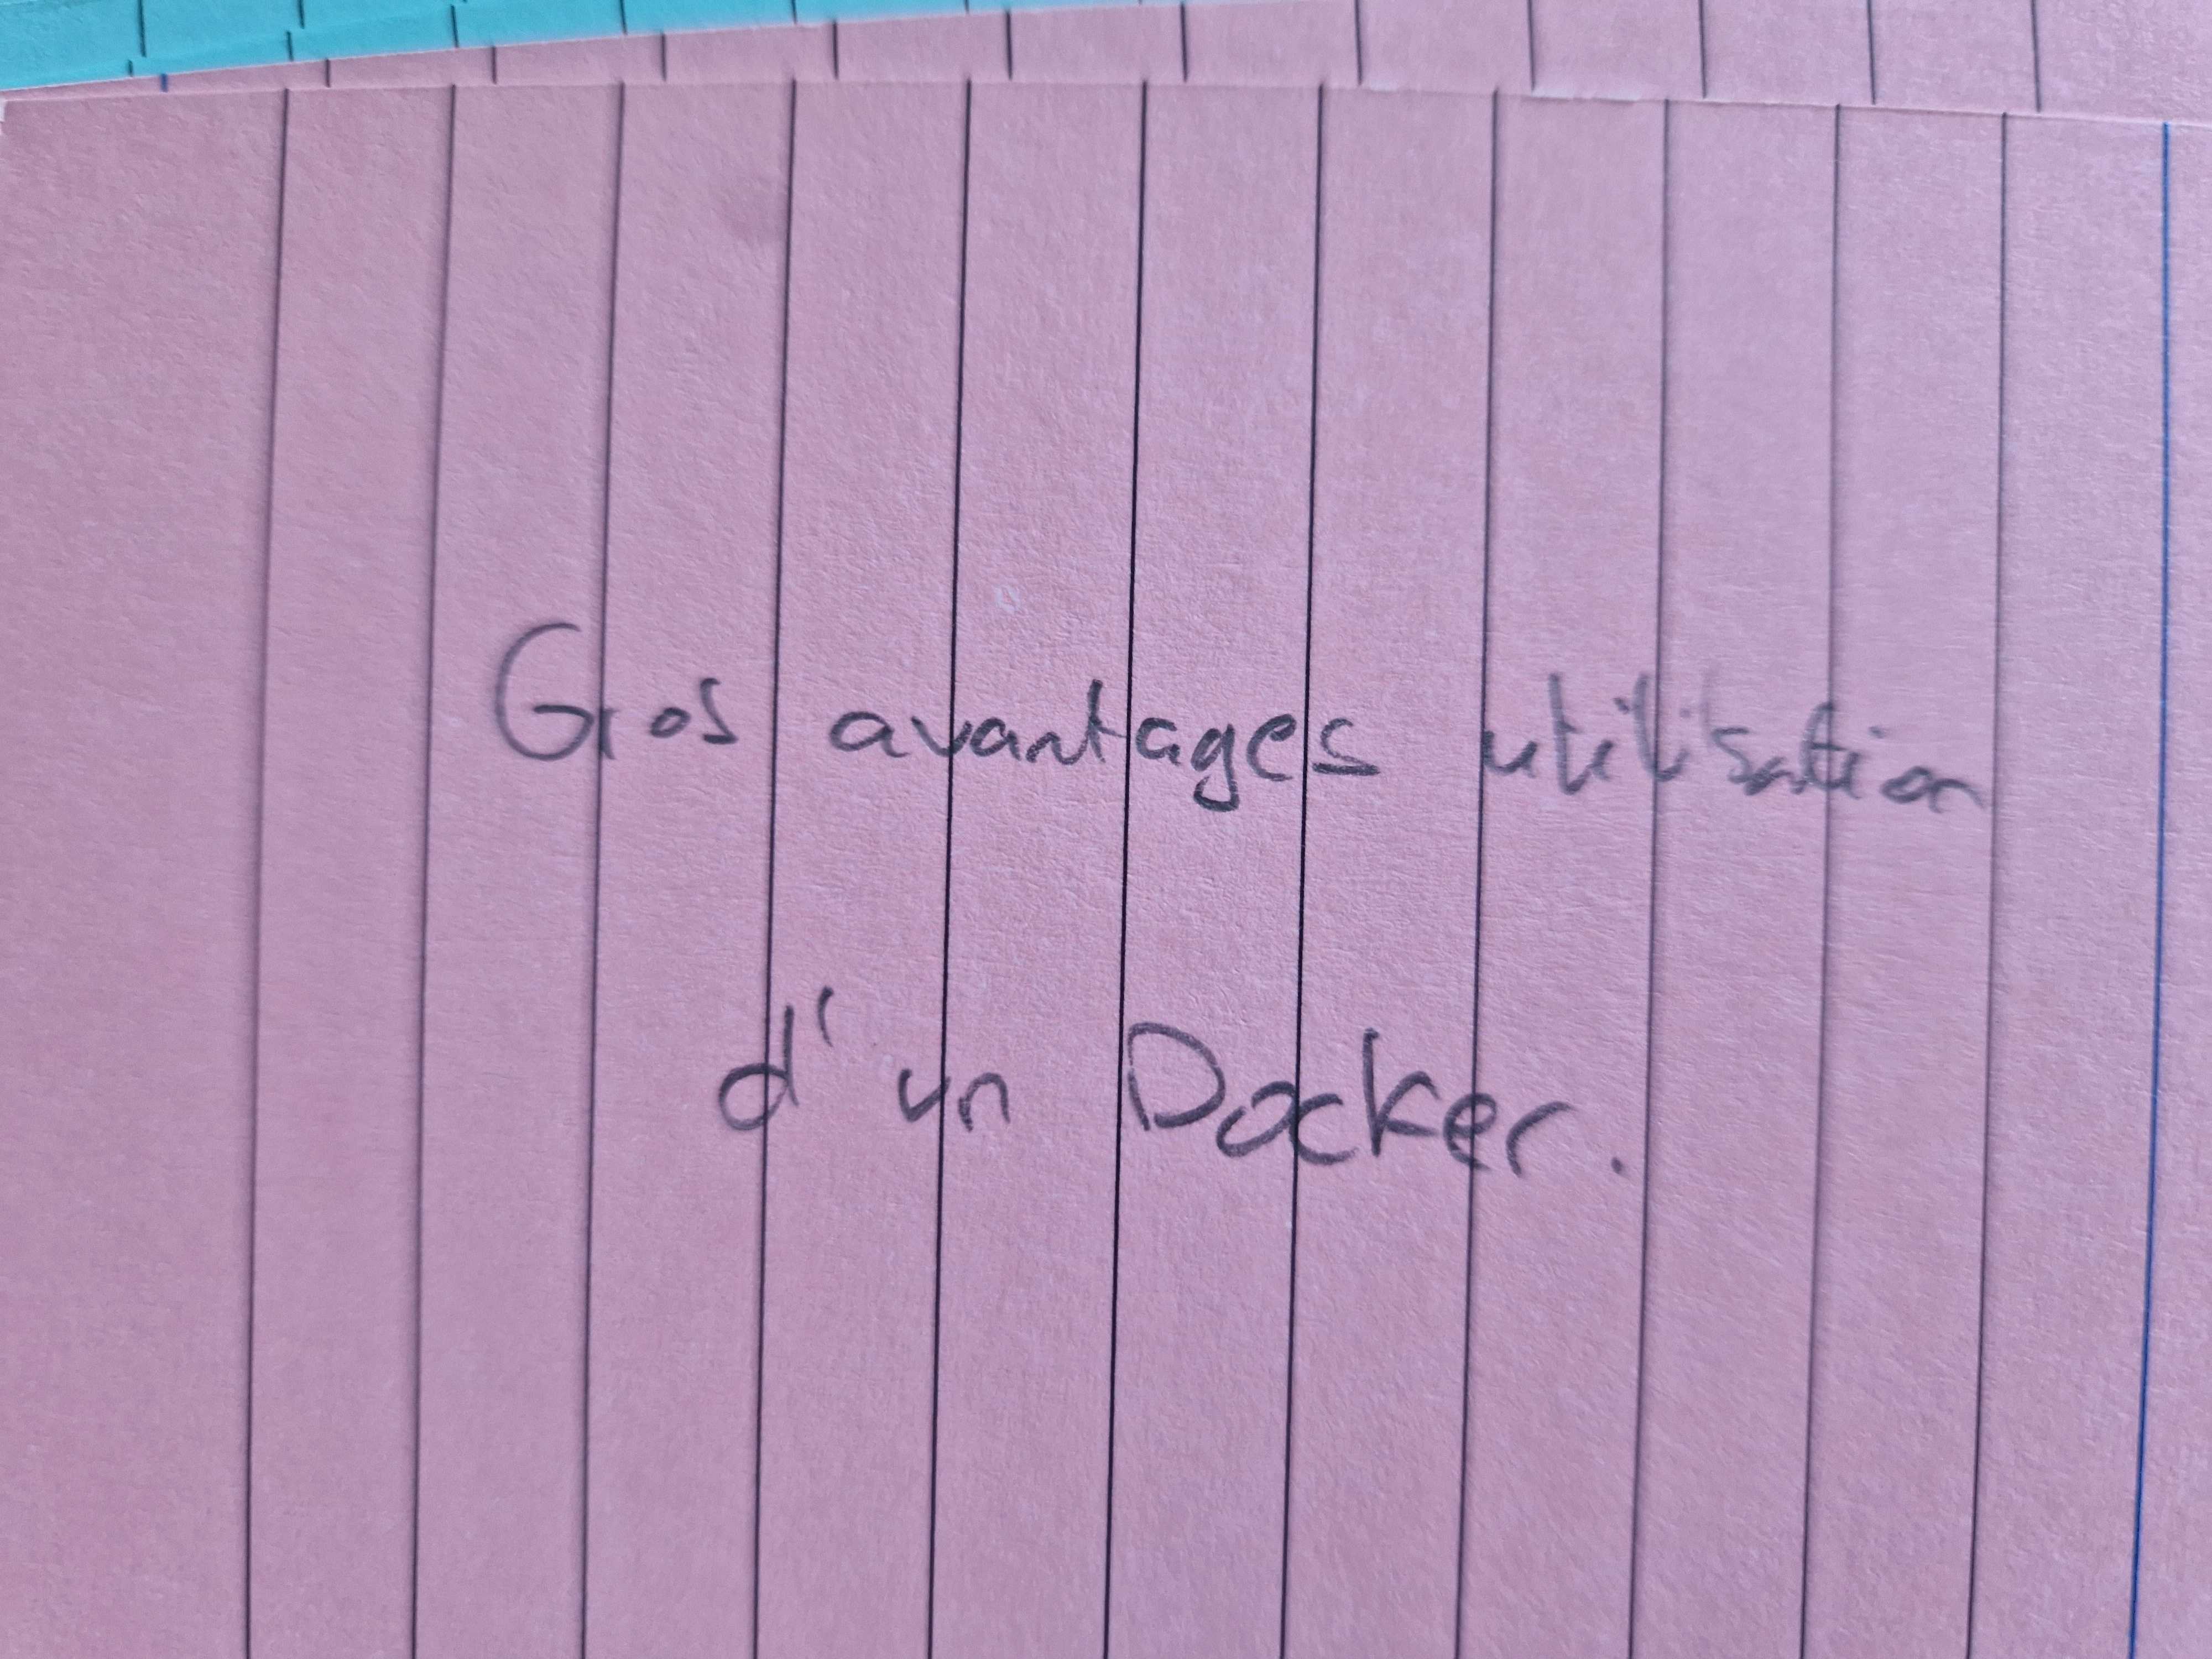 Gros avantages utilisation
d'un Docker.